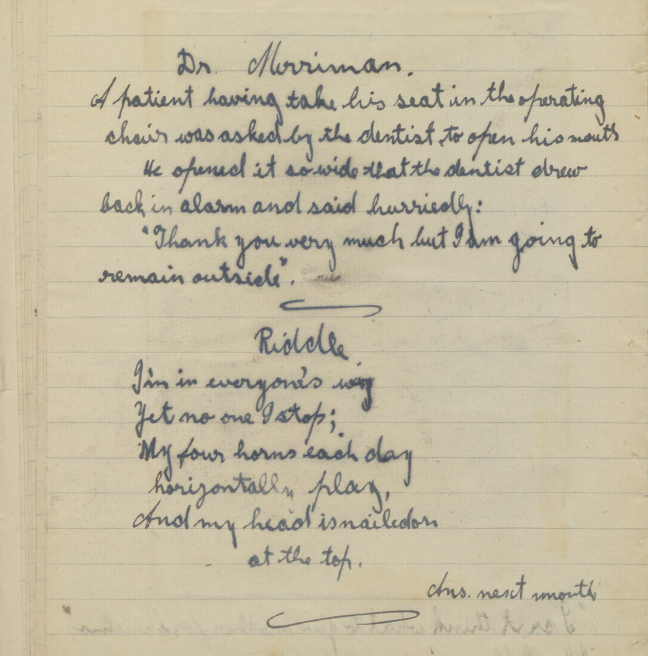 Dr. Merriman.
A patient having take his seat in the operating
chair was asked by the dentist, to open his mouth
He opened it so wide that the dentist drew
back in alarm and said hurriedly:
"Thank you very much but I am going to
remain outside".
Riddle
I'm in everyone's way
Yet no one I stop;
My four horns each day
horizontally play,
And my head is nailed on
at the top.
Ans. next month